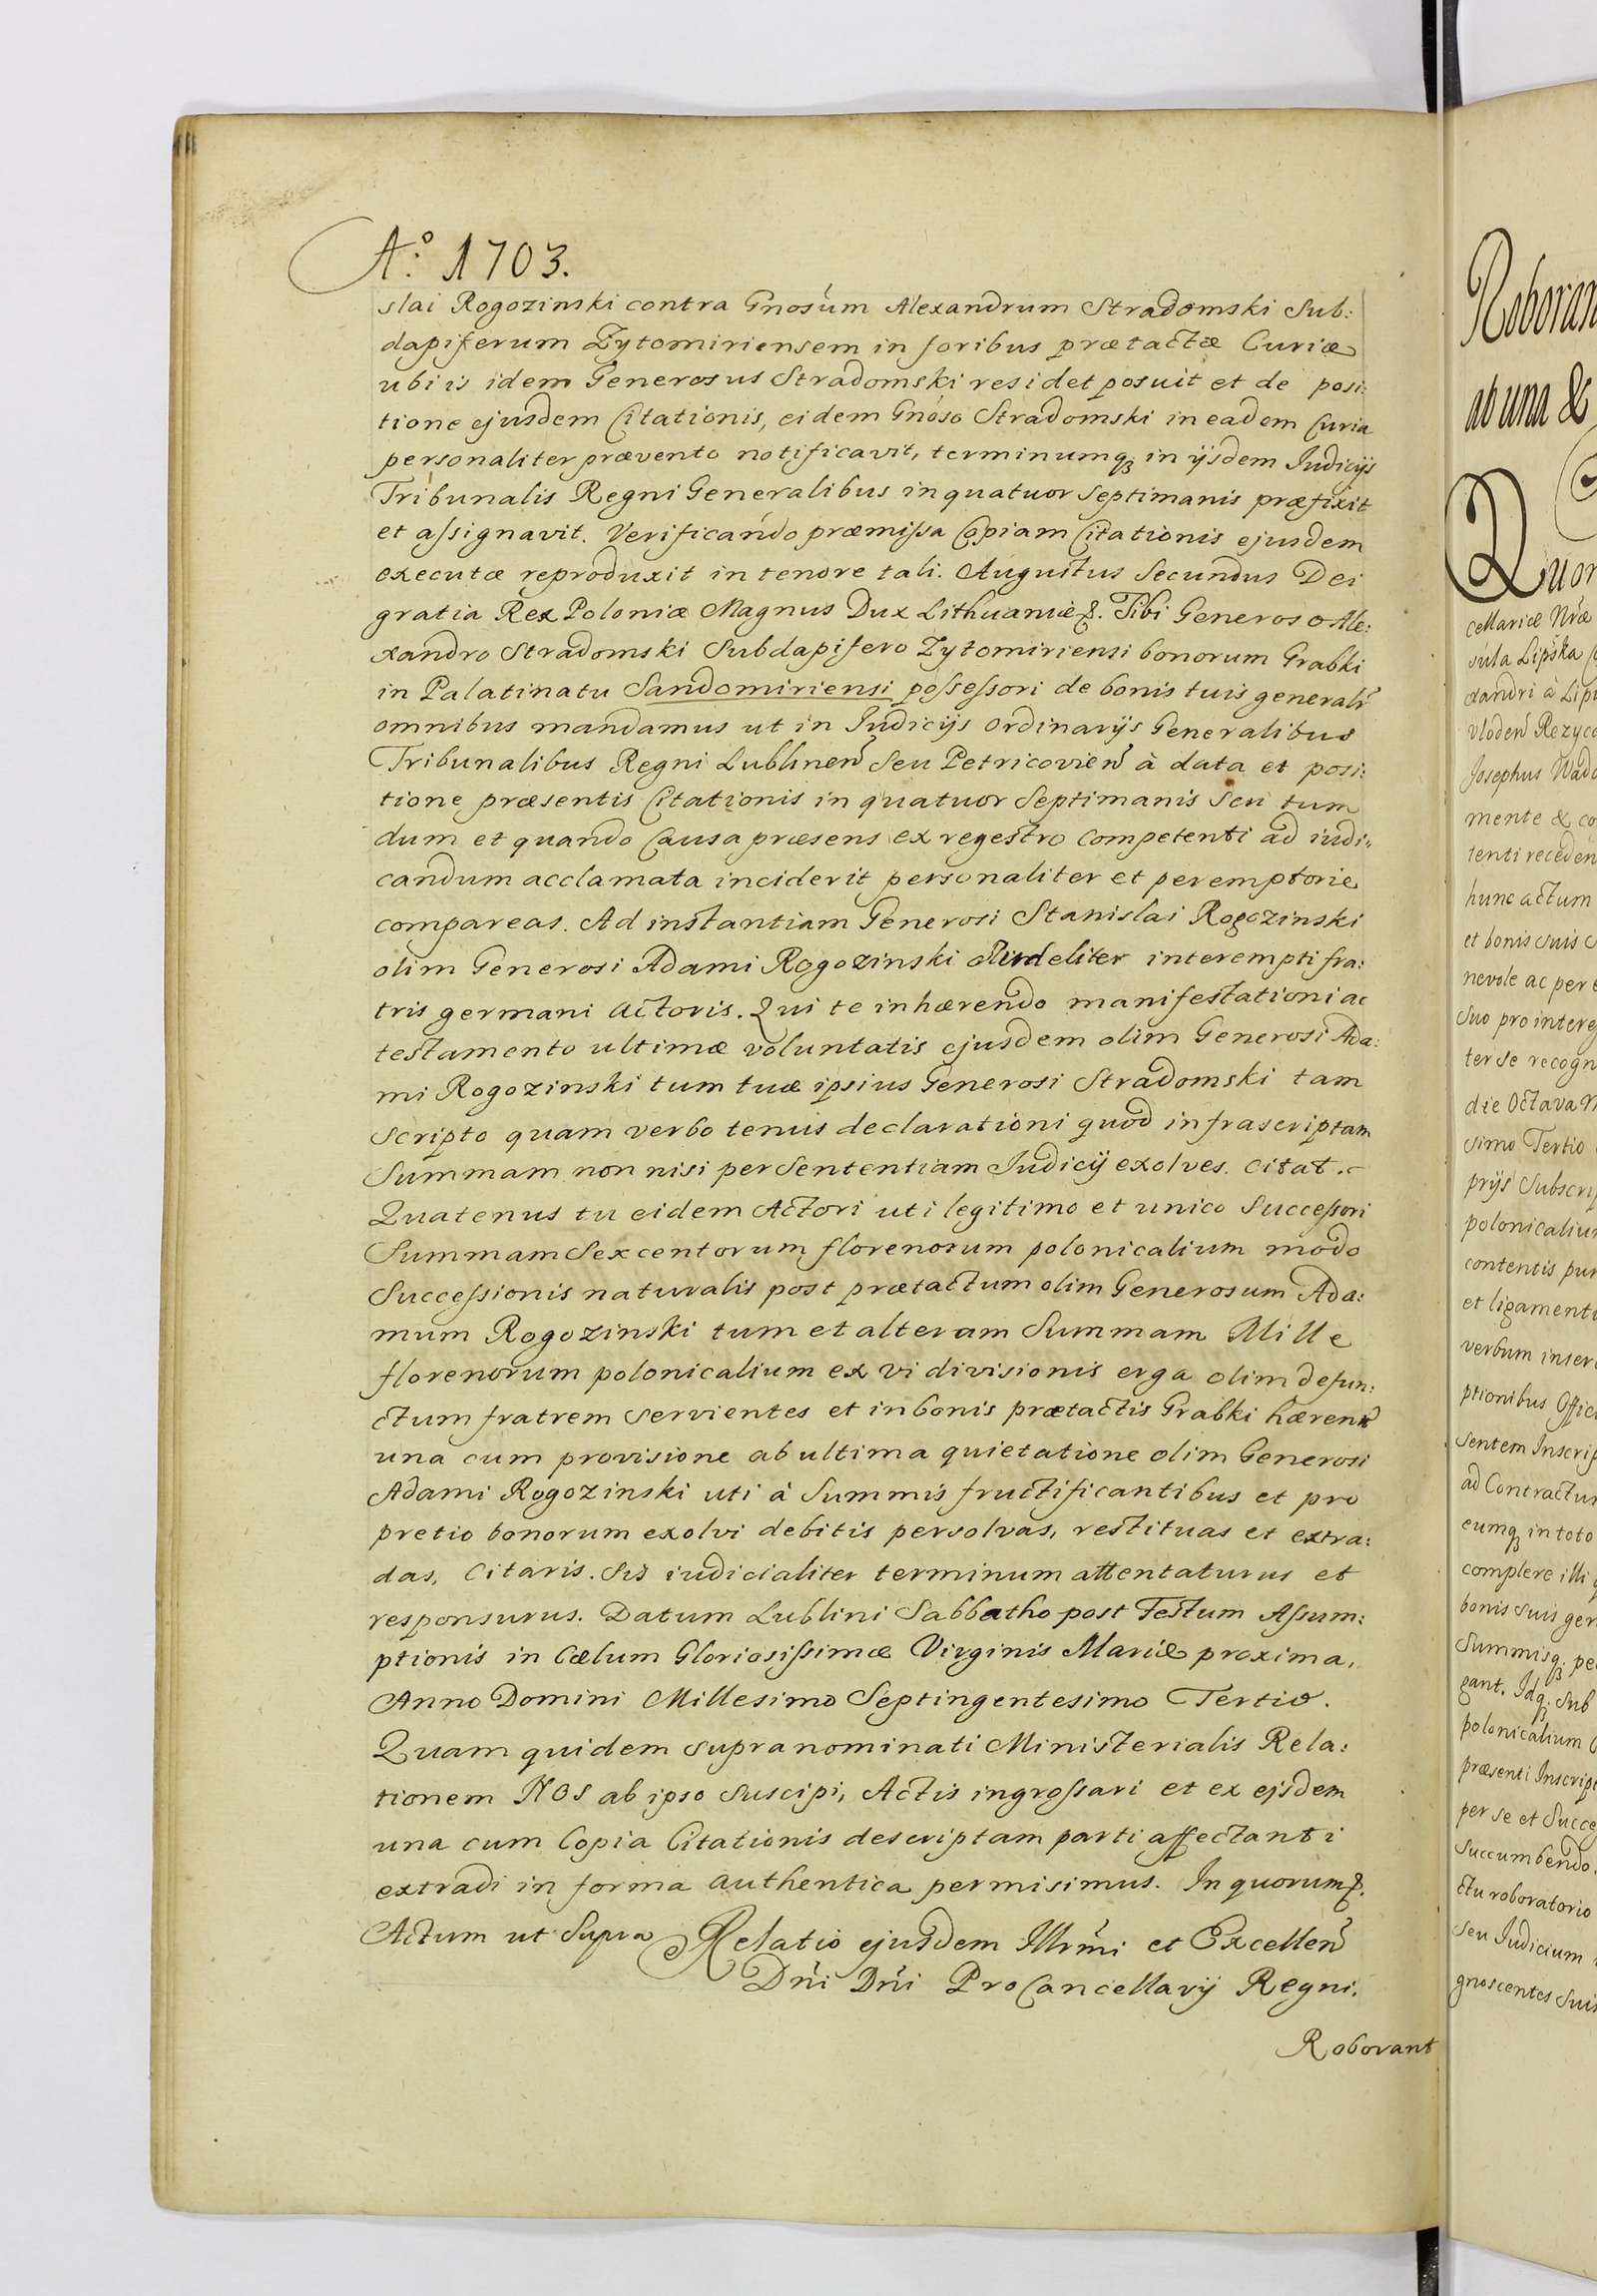 Aº: 1703.
slai Rogozinski contra Gnosũm Alexandrum Stradomski Sub:
dapiferum Zytomiriensem in foribus prætactæ Curiæ
ubi is idem Generosus Stradomski residet posuit et de posi:
tione ejusdem Citationis, eidem Gnõso Stradomski in eadem Curia
personaliter prævento notificavit, terminumqȝ in ijsdem Judicijs
Tribunalis Regni Generalibus in quatuor Septimanis præfixit
et aſsignavit. Verificando præmiſsa Copiam Citationis ejusdem
executæ reproduxit in tenore tali. Augustus Secundus Dei
gratia Rex Poloniæ Magnus Dux Lithuaniæ &. Tibi Generoso Ale:
xandro Stradomski Subdapifero Zytomiriensi bonorum Grabki
in Palatinatu Sandomiriensi poſseſsori de bonis tuis generalr̃
omnibus mandamus ut in Judicijs Ordinarijs Generalibus
Tribunalibus Regni Lublineñ Seu Petricovieñ à data et posi:
tione præsentis Citationis in quatuor Septimanis Seu tum
dum et quando Causa præsens ex regestro Competenti ad iudi:
candum acclamata inciderit personaliter et peremptorie
compareas. Ad instantiam Generosi Stanislai Rogozinski
olim Generosi Adami Rogozinski interempti fra:
tris germani Actoris. Qui te inhærendo manifestationi ac
testamento ultimæ voluntatis ejusdem olim Generosi Ada:
mi Rogozinski tum tuæ ipsius Generosi Stradomski tam
Scripto quam verbo tenus declarationi quod infrascriptam
Summam non nisi per Sententiam Judicij exolves. citat.
Quatenus tu eidem Actori uti legitimo et unico Succeſsori
Summam Sexcentorum florenorum polonicalium modo
Succeſsionis naturalis post prætactum olim Generosum Ada:
mum Rogozinski tum et alteram Summam Mille
florenorum polonicalium ex vi divisionis erga olim defun:
ctum fratrem servientes et in bonis prætactis Grabki hæreñ
una cum provisione ab ultima quietatione olim Generosi
Adami Rogozinski uti à Summis fructificantibus et pro
pretio bonorum exolvi debitis persolvas, restituas et extra:
das, Citaris. Sis iudicialiter terminum attentaturus et
responsurus. Datum Lublini Sabbatho post Festum Aſsum:
ptionis in Cælum Gloriosiſsimæ Virginis Mariæ proxima,
Anno Domini Millesimo Septingentesimo Tertio.
Quam quidem supranominati Ministerialis Rela:
tionem NOS ab ipso Suscipi, Actis ingroſsari et ex ejsdem
una cum Copia Citationis descriptam parti affectanti
extradi in forma authentica permisimus. In quorum &.
Actum ut Supra Relatio ejusdem Illr̃mi et Excelleñ
Dñi Dñi ProCancellarij Regni.
Roborant
Roboran
ab una &
Quor
cellariæ Nr̃æ
sula Lipska
xandri à Lip
vlodeñ Rezyc
Josephus Wado
mente & co
tenti receden
hunc actum
et bonis suis
nevole ac per
Suo pro intere
ter se recogn
die Octava
simo Tertio
prijs Subscri
polonicaliu
contentis pu
et ligament
verbum inser
ptionibus Offic
sentem Inscrip
ad Contractu
eumqȝ in toto
complere illi
bonis suis ger
Summisqȝ pe
gant. Idqȝ. Sub
polonicalium
præsenti Inscrip
per se et Succe
Succumbendo.
ctu roboratorio
Seu Judicium
gnoscentes Suis